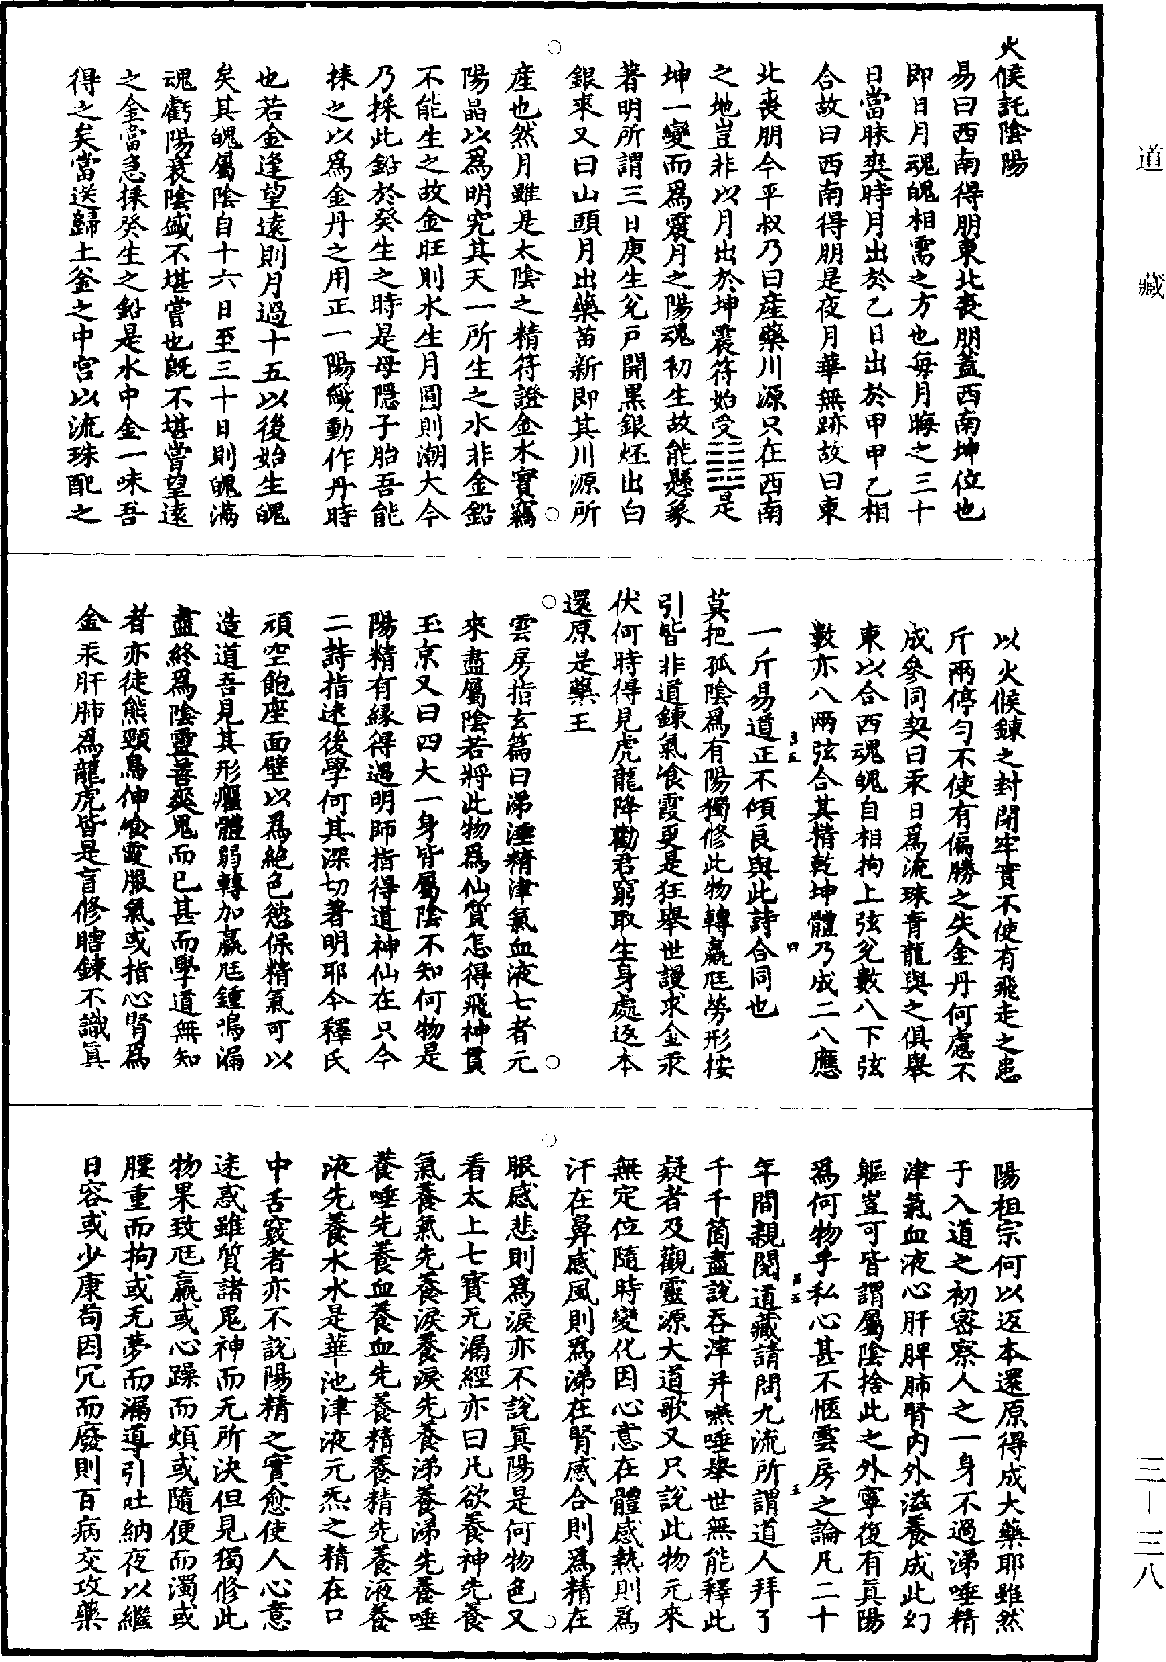 道藏
火候託陰陽
易曰西南得朋東北喪朋蓋西南坤位也
即日月魂魄相需之方也每月晦之三十
日當昧爽時月出於乙日出於甲甲乙相
合故曰西南得朋是夜月華無跡故曰東
北喪朋今平叔乃曰産藥川源只在西南
之地豈非以月出於坤震符始受䷁䷲是
坤一變而為震月之陽魂初生故能懸象
著明所謂三日庚生兌戶開黑銀坯出白
銀來又曰山頭月出藥苗新即其川源所
産也然月雖是太陰之精符證金木實竊
陽晶以為明究其天一所生之水非金鉛
不能生之故金旺則水生月圓則潮大今
乃採此鉛於癸生之時是母隱子胎吾能
採之以為金丹之用正一陽纔動作丹時
也若金逢望遠則月過十五以後始生魄
矣其魄屬陰自十六日至三十日則魄滿
魂虧陽衰陰盛不堪嘗也既不堪嘗望遠
之金當急採癸生之鉛是水中金一味吾
得之矣當送歸土釜之中宮以流珠配之
以火候鍊之封閉牢實不使有飛走之患
斤兩停勻不使有偏勝之失金丹何慮不
成參同契曰汞日為流珠青龍與之俱舉
東以合西魂魄自相拘上弦兌數八下弦
數亦八兩弦合其精乾坤體乃成二八應
一斤易道正不傾良與此詩合同也
莫把孤陰為有陽獨修此物轉羸尫勞形按
引皆非道鍊氣飡霞更是狂舉世謾求金汞
伏何時得見虎龍降勸君窮取生身處返本
還原是藥王
雲房指玄篇曰涕唾精津氣血液七者元
來盡屬陰若將此物為仙質怎得飛神貫
玉京又曰四大一身皆屬陰不知何物是
陽精有緣得遇明師指得道神仙在只今
二詩指迷後學何其深切著明耶今釋氏
頑空飽座面壁以為絕色慾保精氣可以
造道吾見其形癯體弱轉加羸尫鍾鳴漏
盡終為陰靈善爽鬼而已甚而學道無知
者亦徒熊頸鳥伸飡霞服氣或指心腎為
金汞肝肺為龍虎皆是盲修瞎鍊不識真
陽祖宗何以返本還原得成大藥耶雖然
于入道之初密察人之一身不過涕唾精
津氣血液心肝脾肺腎內外滋養成此幻
軀豈可皆謂屬陰捨此之外寧復有真陽
為何物乎私心甚不愜雲房之論凡二十
年間親閱道藏請問九流所謂道人拜了
千千箇盡說吞津并嚥唾舉世無能釋此
疑者及觀靈源大道歌又只說此物元來
無定位隨時變化因心意在體感熱則為
汗在鼻感風則為涕在腎感合則為精在
眼感悲則為淚亦不說真陽是何物色又
看太上七寶无漏經亦曰凡欲養神先養
氣養氣先養淚養淚先養涕養涕先養唾
養唾先養血養血先養精養精先養液養
液先養水水是華池津液元炁之精在口
中舌竅者亦不說陽精之實愈使人心意
迷惑雖質諸鬼神而无所決但見獨修此
物果致尫羸或心躁而煩或隨便而濁或
腰重而拘或无夢而漏導引吐納夜以繼
日容或少康苟因冗而廢則百病交攻藥
三—三八